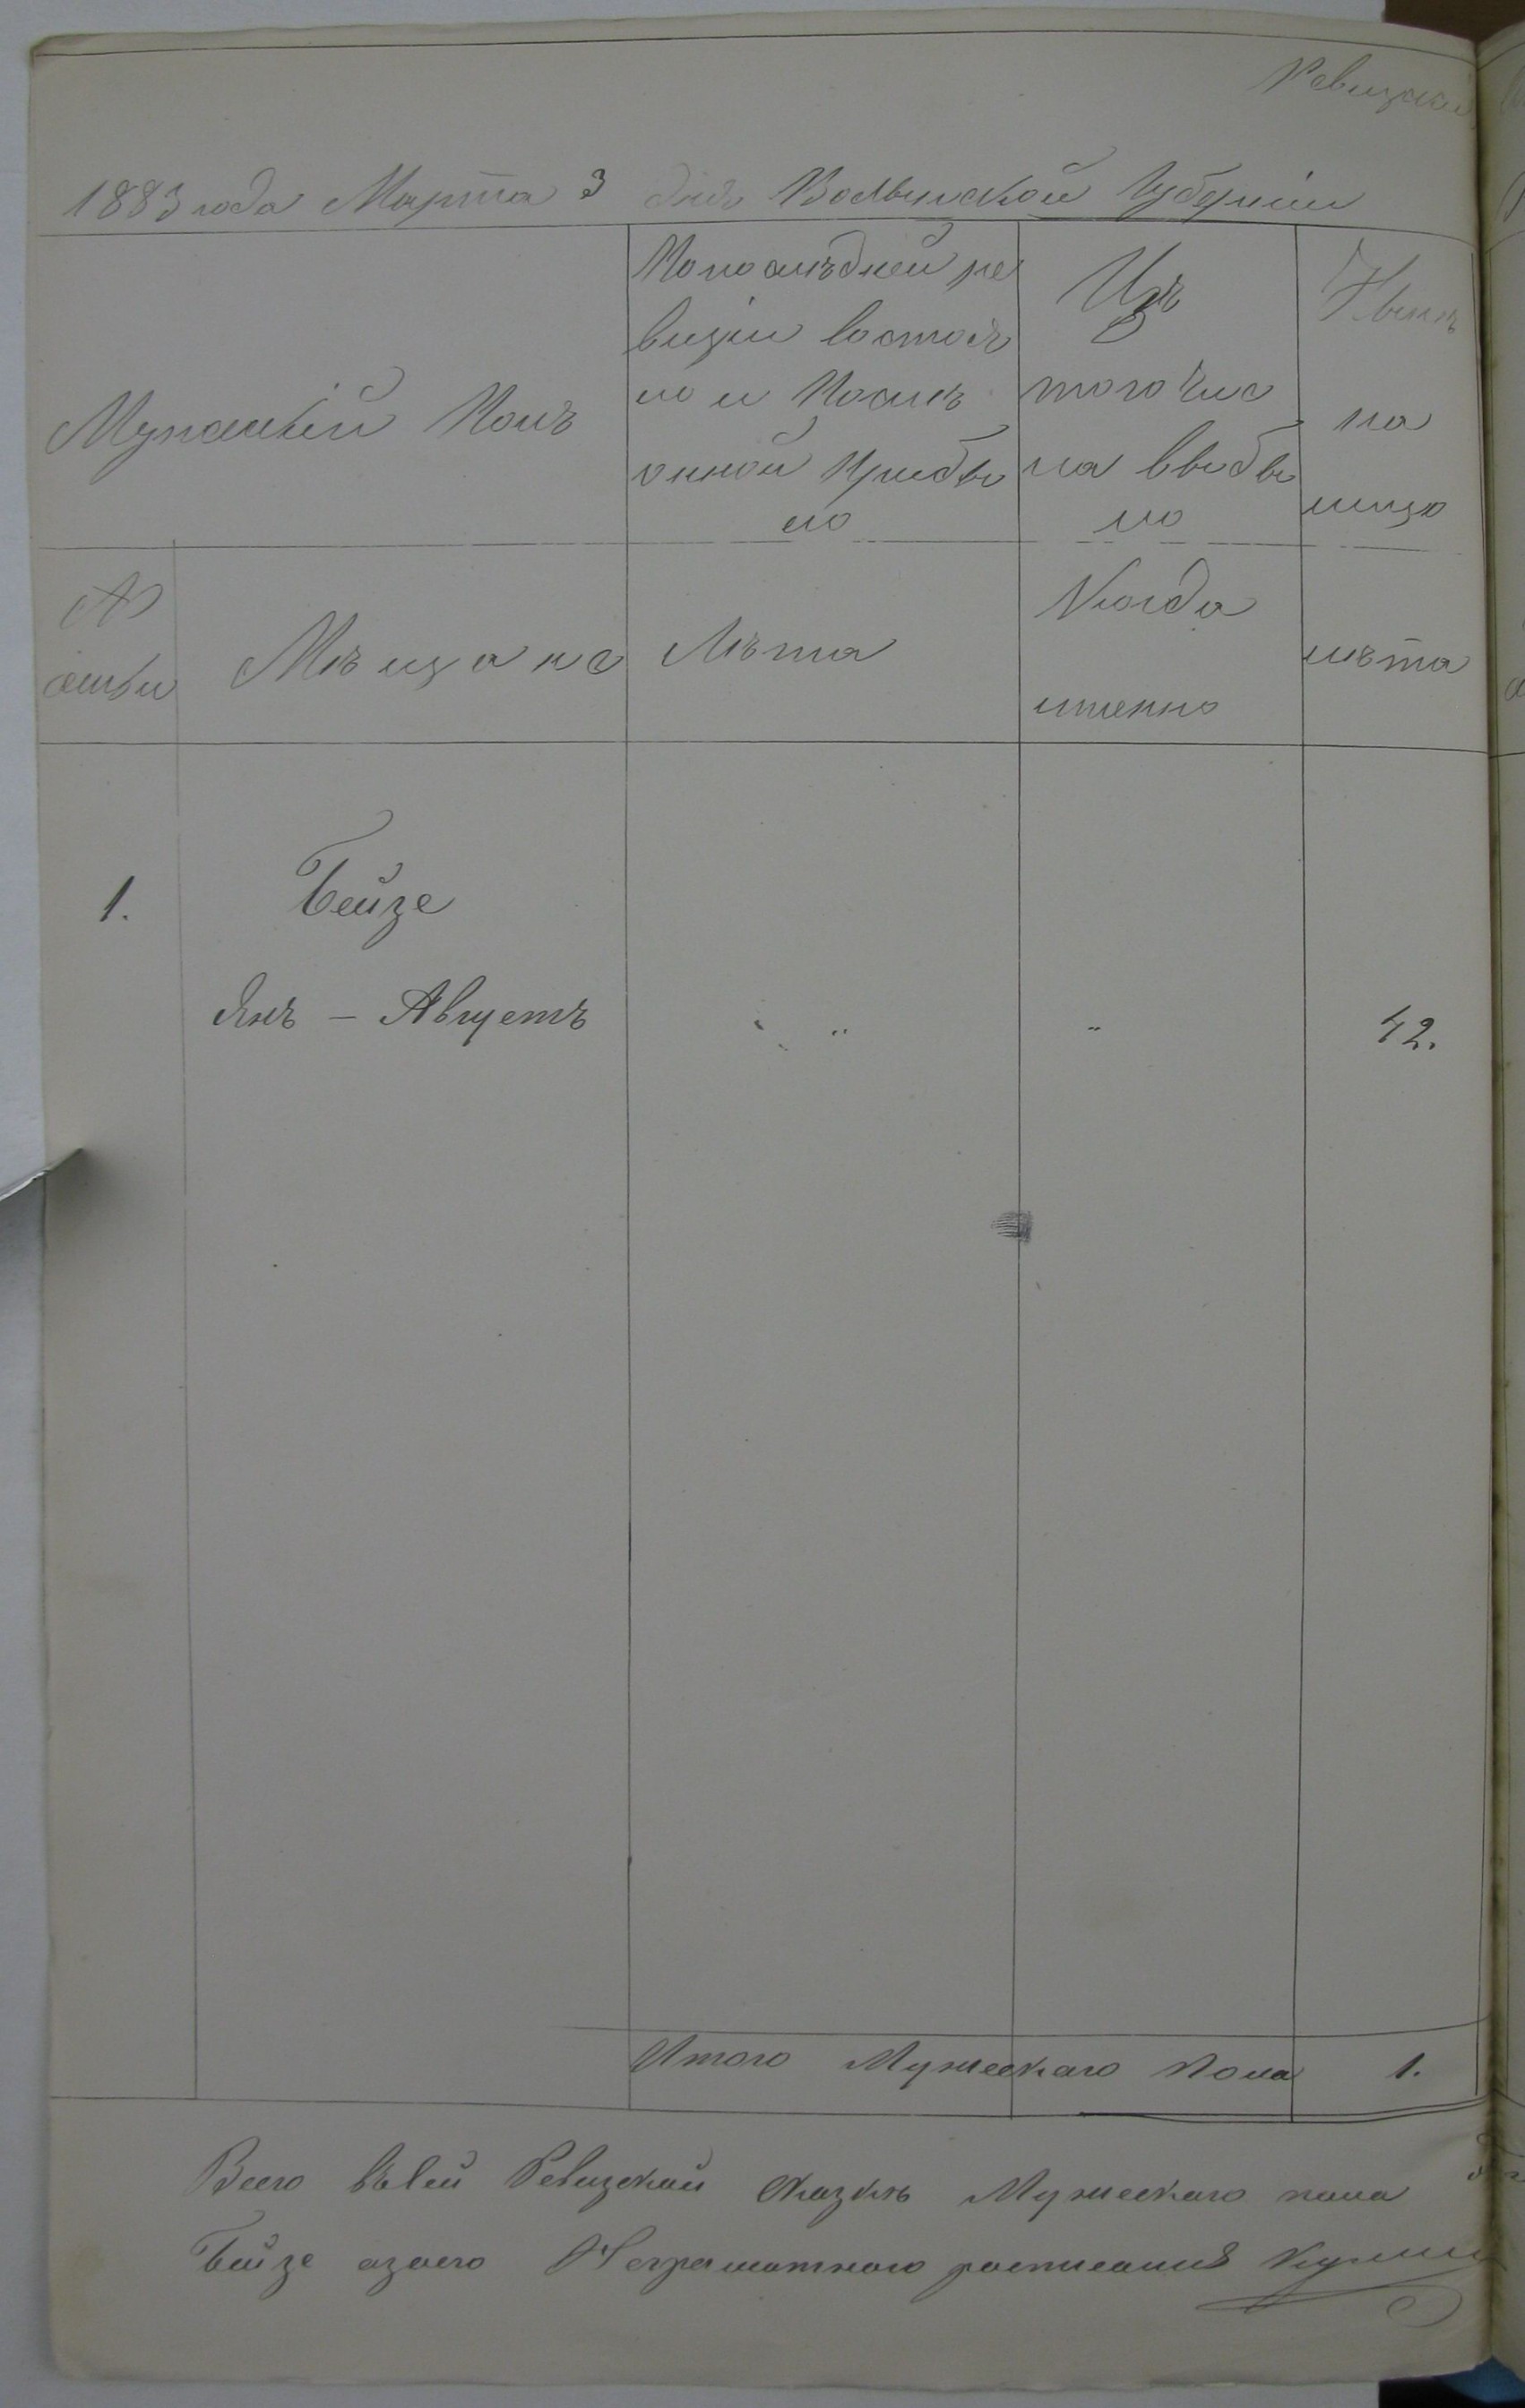 Ревизская
1883 года Марта 3 дня Волынской Губерніи
Мужескій Полъ
По послѣдней ре
визіи состоя
ло и Послѣ
оной Прибы
ло
Изъ
того Чис
ла выбы
ло
Нынѣ
на
лицо
№
семьи
Мѣщане
Лѣта
Когда
именно
лѣта
1.
Бейзе
Янъ - Августъ
"
"
42.
Итого Мужескаго Пола 1.
Всего въ сей Ревизской Сказкѣ Мужескаго пола
Бейзе а за его Неграмотного росписался